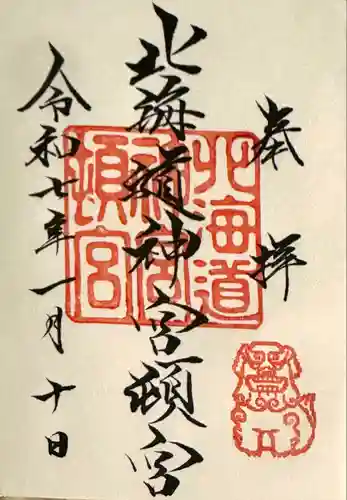 奉拝
北海道神宮頓宮
令和七年一月十日
北海道
神宮
頓宮